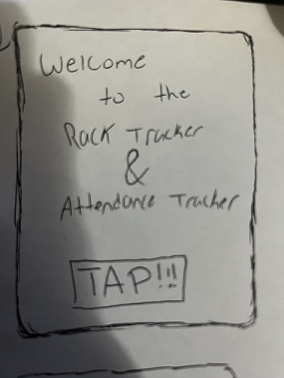 Welcome
to the
Rack Tracker
&
Attendance Tracker
TAP!!!